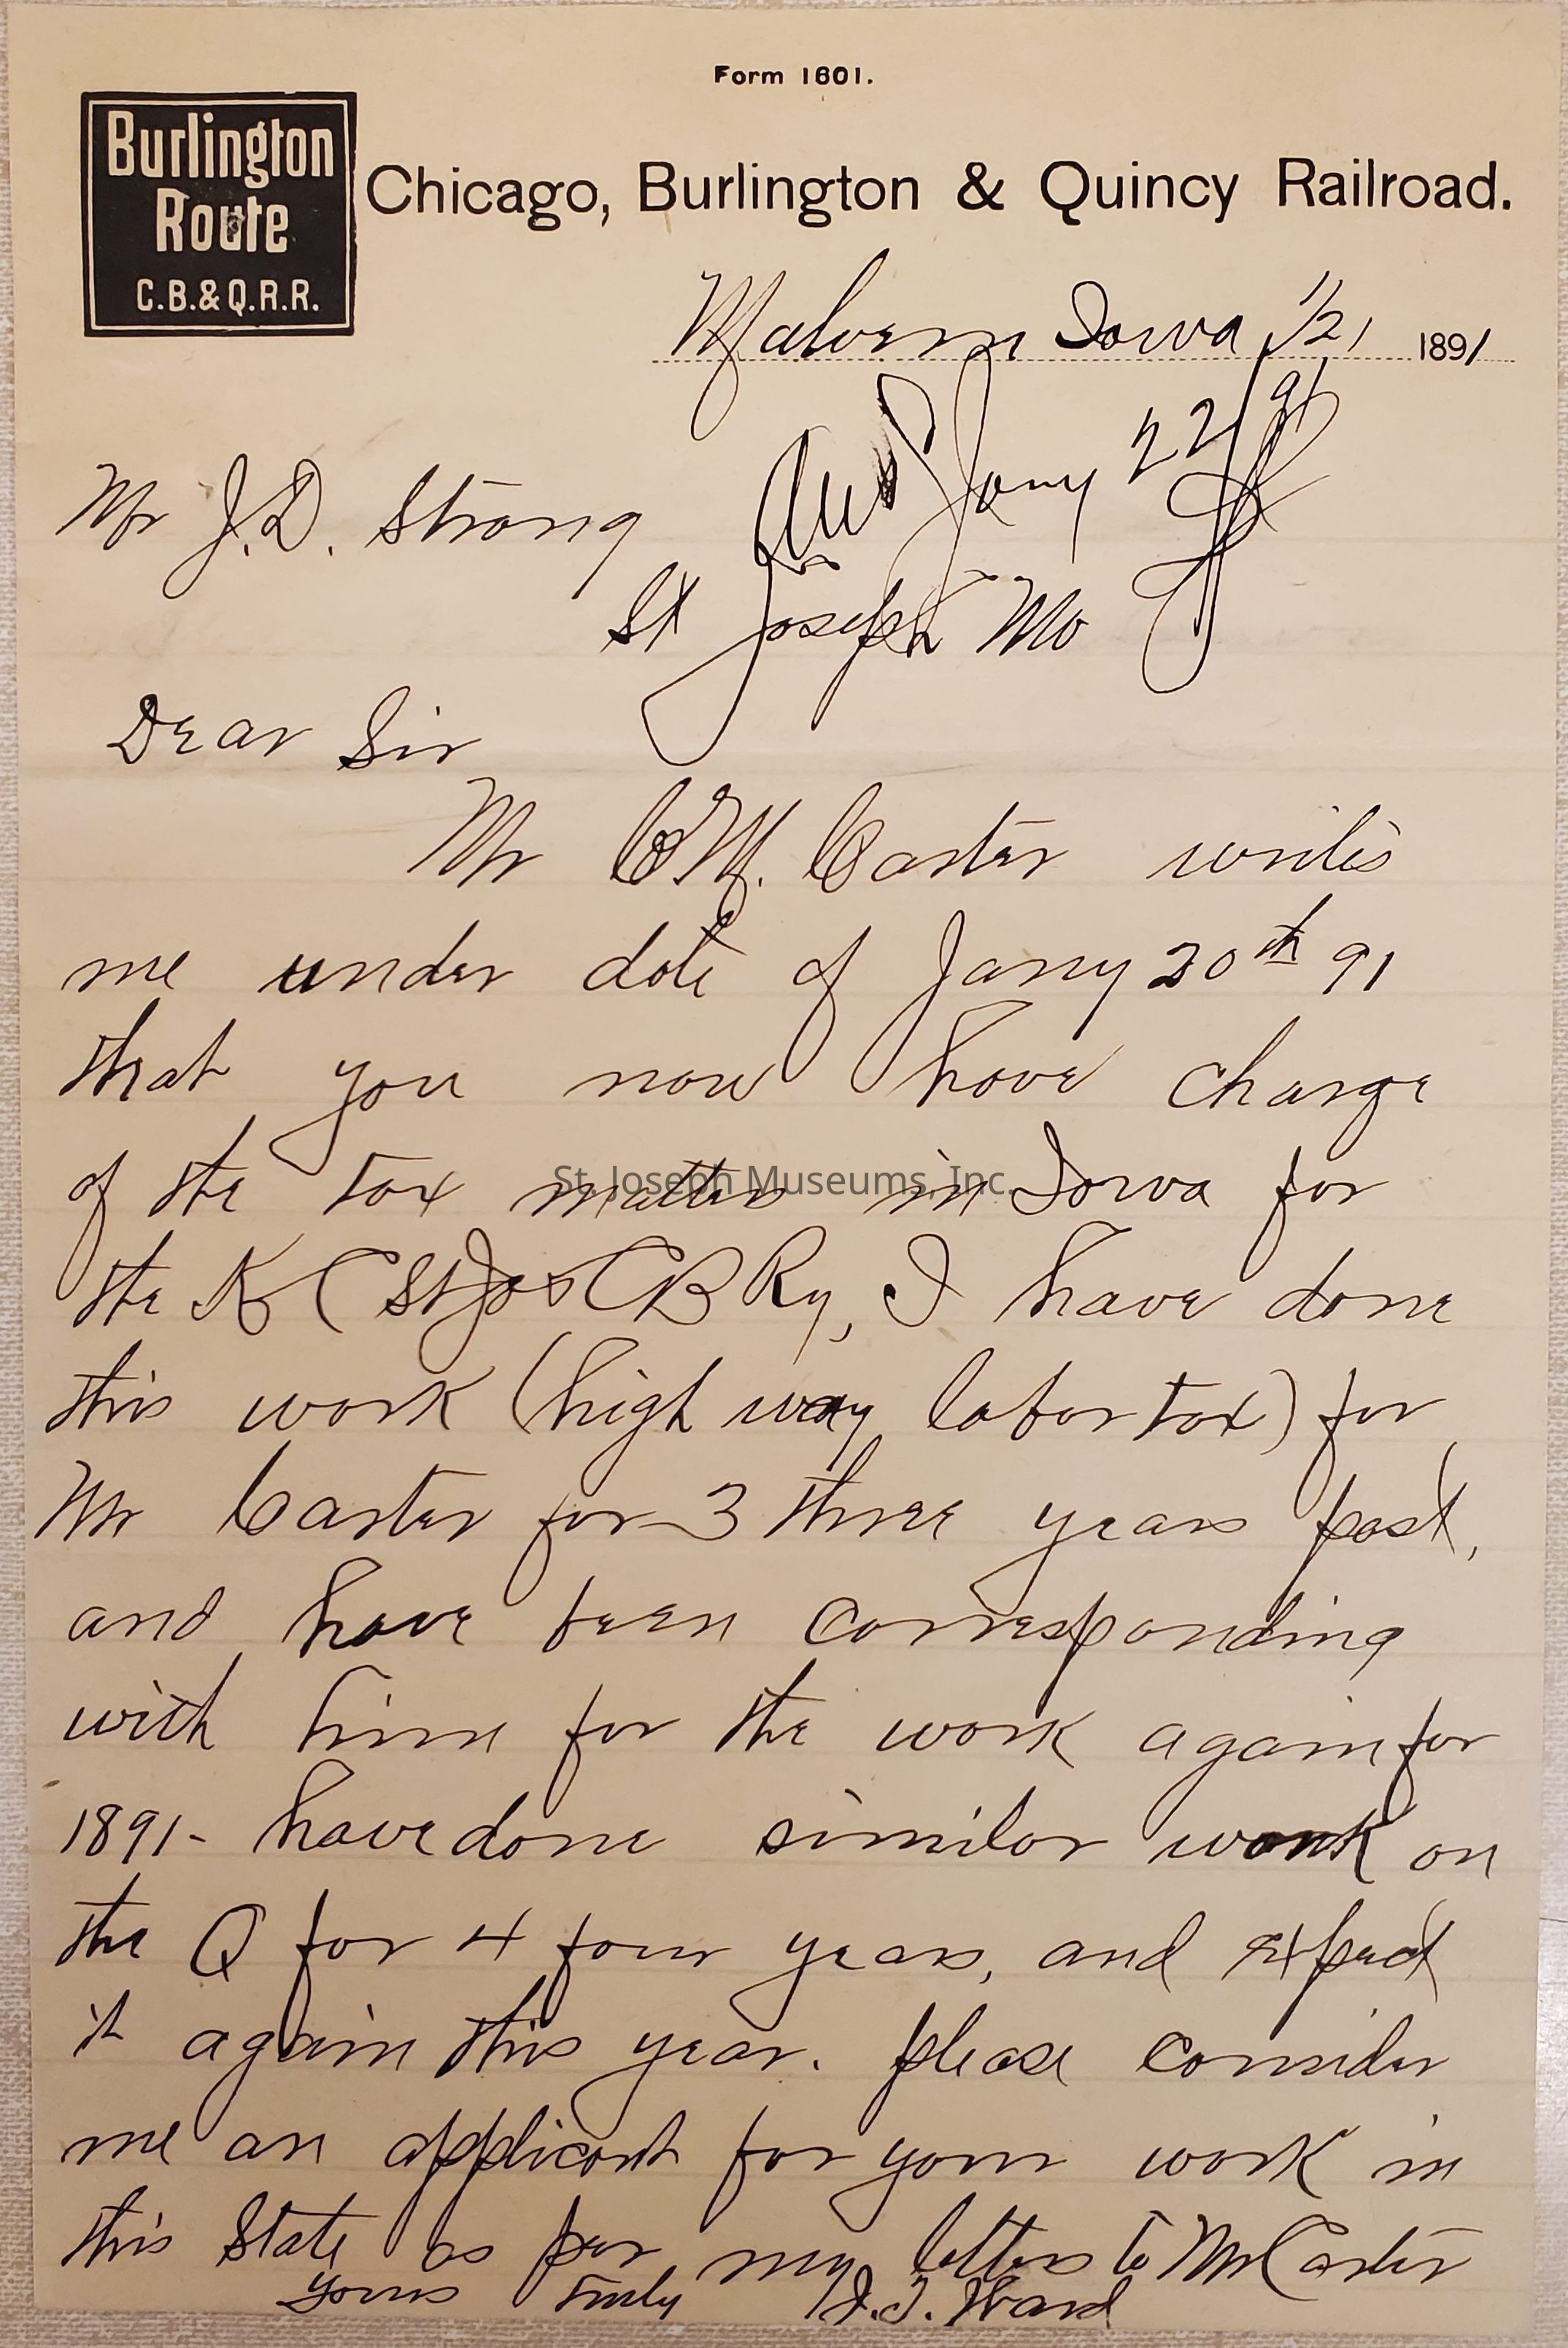 Form 1601.
Burlington
Route
C.B.&Q.R.R.
Chicago, Burlington & Quincy Railroad.
Malvern Iowa 1/21 1891
Jany 22/91
Mr J.D. Strong
St Joseph Mo
Dear Sir
Mr C M. Carter writes
me under date of Jany 20th 91
that you now have charge
of the tax matters in Iowa for
St. Joseph Museums, Inc.
the K C St Jos & C B Ry, I have done
this work (high way labor tax) for
Mr Carter for 3 three years past,
and have been corresponding
with him for the work again for
1891- have done similar work on
the Q for 4 four years, and expect
it again this year. please consider
me an applicant for your work in
this State as per my letters to Mr Carter
yours truly J.T. Ward